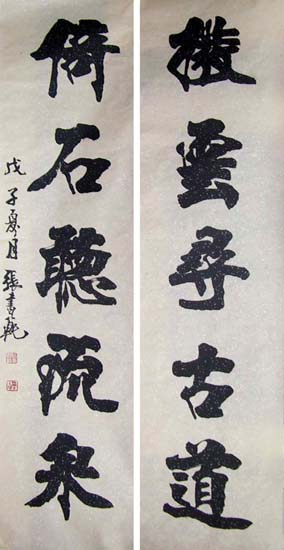 撥雲尋古道
倚石聽流泉
戊子夏月張書範